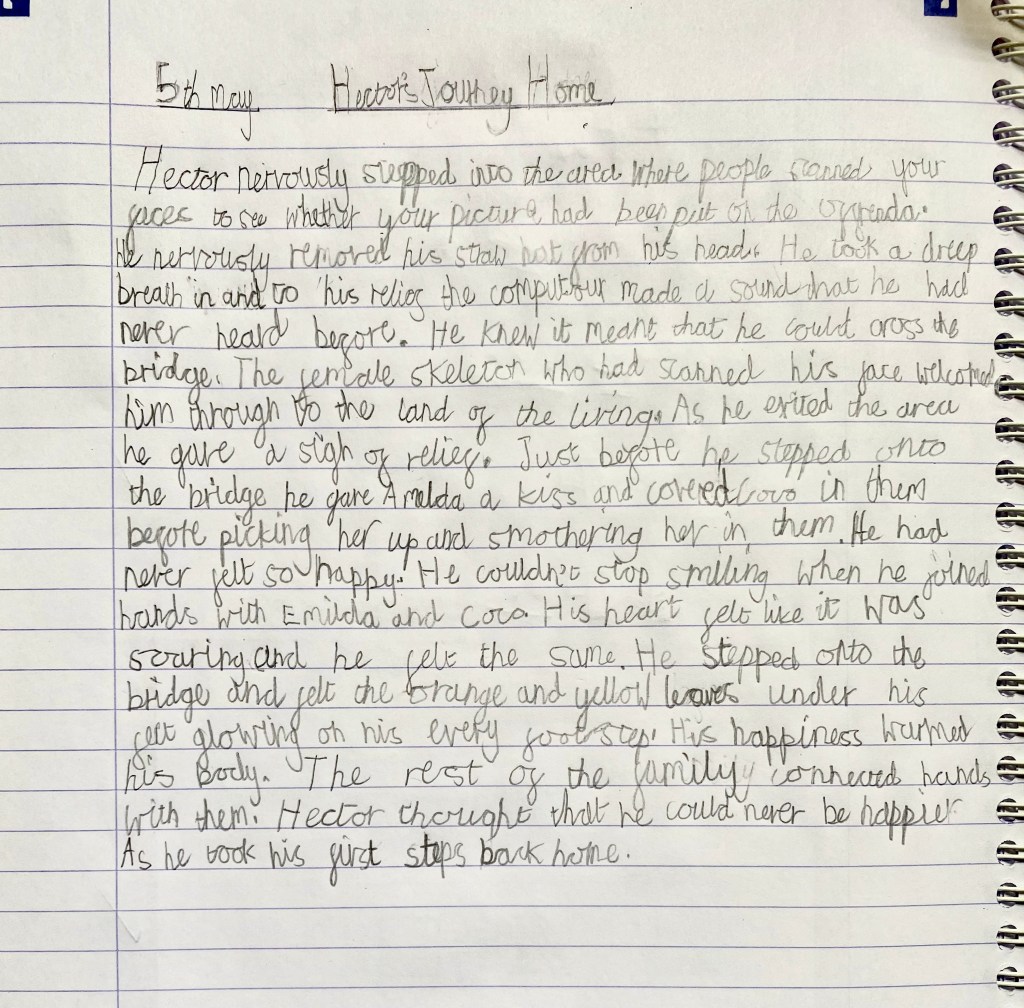 5th May Hector's Journey Home
Hector nervously stepped into the area where people scanned your
faces to see whether your picture had been put on the offrenda.
He nervously removed his straw hat from his head. He took a dreep
breath in and to his relief the computour made a sound that he had
never heard before. He knew it meant that he could cross the
bridge. The female skeleton who had scanned his face welcomed
him through to the land of the living. As he exited the area
he gave a sigh of relief. Just before he stepped onto
the bridge he gave Amelda a kiss and covered Coco in them
before picking her up and smothering her in them. He had
never felt so happy. He couldn't stop smiling when he joined
hands with Emilda and Coco. His heart felt like it was
soaring and he felt the same. He stepped onto the
bridge and felt the orange and yellow leaves under his
feet glowing on his every footstep. His happiness warmed
his body. The rest of the family connected hands
with them. Hector thought that he could never be happier
As he took his first steps back home.